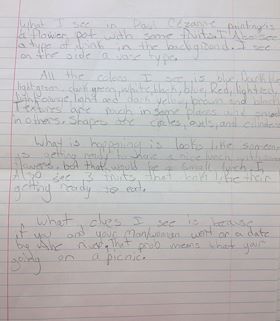 What I see in Paul Cézanne painting is
a flower pot with some fruits. I also see
a type of drink in the background. I see
on the side a vase type.
All the colors I see, is blue, Dark blue
light green, dark green, white, black, blue, Red, light red,
light orange, light and dark yellow, brown and black
Textures are rough in some places and smooth
in others. Shapes are circles, ovals, and cylinder
What is happening is looks like someone
is getting ready to have a nice lunch with
flowers, but that would be a small lunch. I
Also see 3 fruits that look like their
getting ready to eat.
What clues I see is because
if you and your Man/woman went on a date
by the river. That prob means that your
going on a picnic.